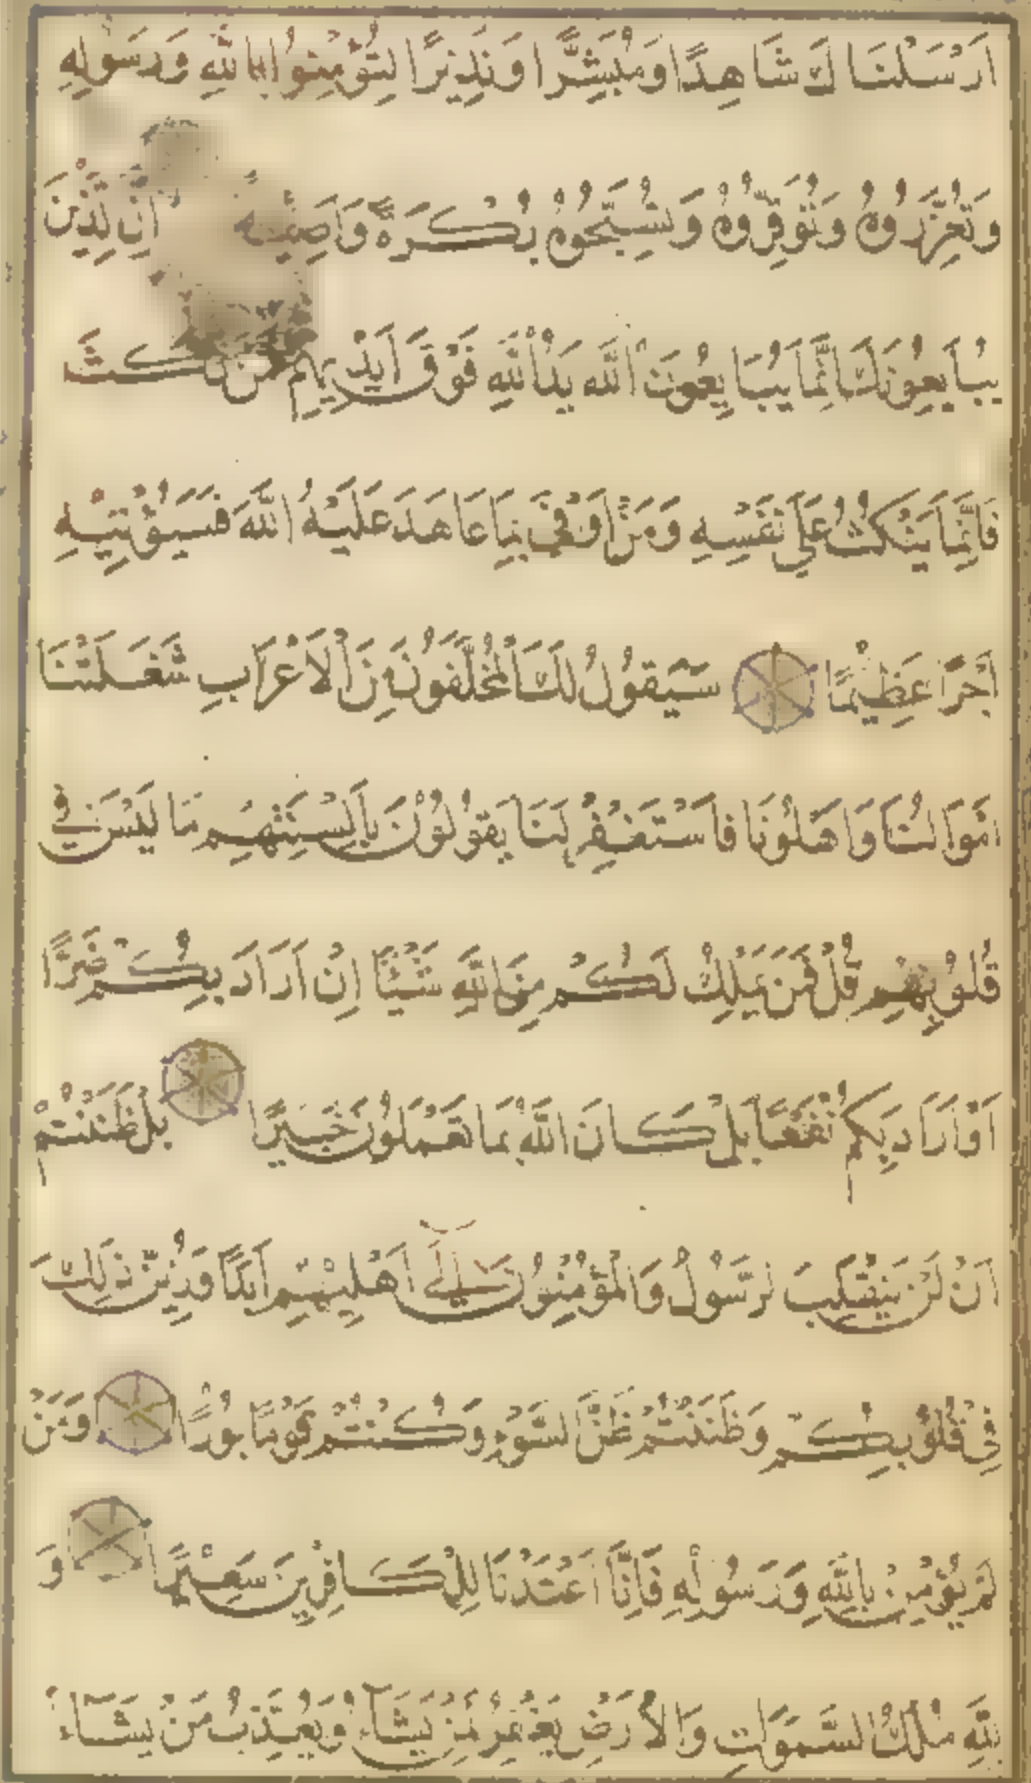 اَرْسَلْنَاكَ شَاهِدًا وَمُبَشِّرًا وَنَذِيرًا لِتُؤْمِنُوا بِاللهِ وَرَسُولِهِ
وَتُعَزِّرُوهُ وَتُوَقِّرُوهُ وَتُسَبِّحُوهُ بُكْرَةً وَاَصِيلًا اِنَّ الَّذِينَ
يُبَايِعُونَكَ اِنَّمَا يُبَايِعُونَ اللهَ يَدُ اللهِ فَوْقَ اَيْدِيهِمْ فَمَنْ نَكَثَ
فَاِنَّمَا يَنْكُثُ عَلَى نَفْسِهِ وَمَنْ اَوْفَى بِمَا عَاهَدَ عَلَيْهُ اللهَ فَسَيُؤْتِيهِ
اَجْرًا عَظِيمًا سَيَقُولُ لَكَ الْمُخَلَّفُونَ مِنَ الْاَعْرَابِ شَغَلَتْنَا
اَمْوَالُنَا وَاَهْلُونَا فَاسْتَغْفِرْ لَنَا يَقُولُونَ بِاَلْسِنَتِهِمْ مَا لَيْسَ فِي
قُلُوبِهِمْ قُلْ فَمَنْ يَمْلِكُ لَكُمْ مِنَ اللهِ شَيْئًا اِنْ اَرَادَ بِكُمْ ضَرًّا
اَوْ اَرَادَ بِكُمْ نَفْعًا بَلْ كَانَ اللهُ بِمَا تَعْمَلُونَ خَبِيرًا بَلْ ظَنَنْتُمْ
اَنْ لَنْ يَنْقَلِبَ الرَّسُولُ وَالْمُؤْمِنُونَ اِلَى اَهْلِيهِمْ اَبَدًا وَزُيِّنَ ذَلِكَ
فِي قُلُوبِكُمْ وَظَنَنْتُمْ ظَنَّ السَّوْءِ وَكُنْتُمْ قَوْمًا بُورًا وَمَنْ
لَمْ يُؤْمِنْ بِاللهِ وَرَسُولِهِ فَاِنَّا اَعْتَدْنَا لِلْكَافِرِينَ سَعِيرًا وَ
لِلهِ مُلْكُ السَّمَوَاتِ وَالْاَرْضِ يَغْفِرُ لِمَنْ يَشَاءُ وَيُعَذِّبُ مَنْ يَشَاءُ